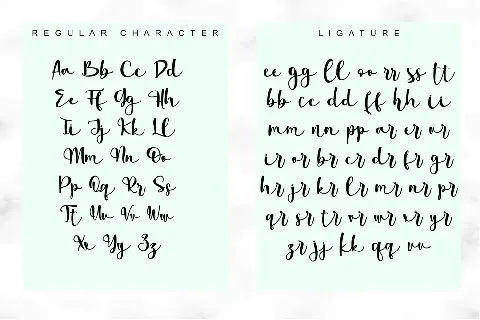 REGULAR CHARACTER
Aa Bb Cc Dd
Ee Ff Gg Hh
Ii Jj Kk Ll
Mm Nn Oo
Pp Qq Rr Ss
Tt Uu Vv Ww
Xx Yy Zz
LIGATURE
ee gg ll oo rr ss tt
bb cc dd ff hh ii
mm nn pp ar er ur
ir or br cr dr fr gr
hr jr kr lr mr nr pr
qr sr tr vr wr xr yr
zr jj kk qq uu